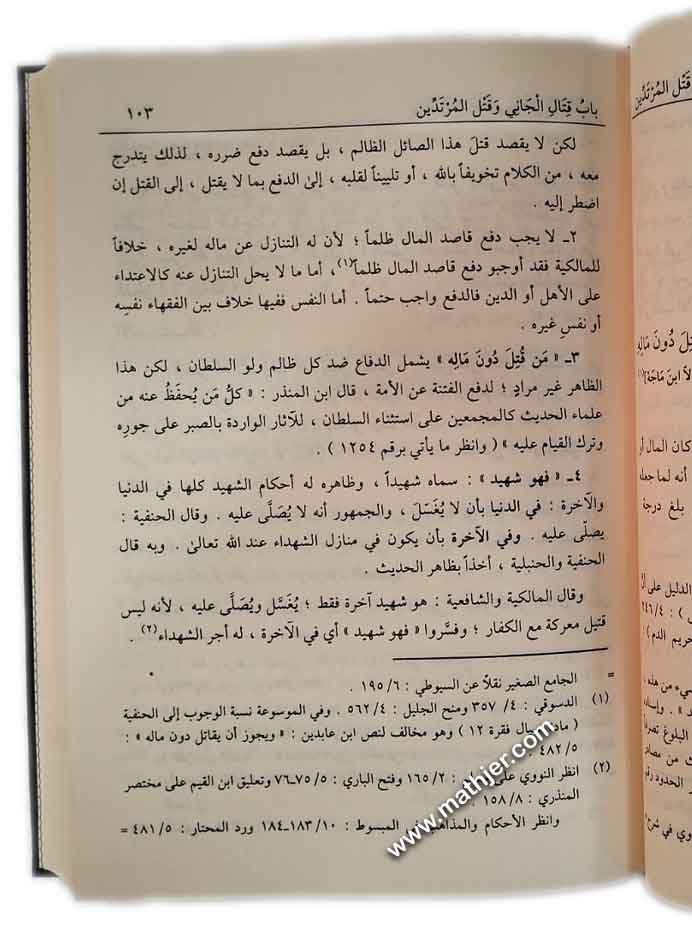 بابُ قِتَالِ الْجَانِي وَقَتْلِ المُرْتَدِّين
١٠٣
لكن لا يقصد قتلَ هذا الصائل الظالم ، بل يقصد دفع ضرره ، لذلك يتدرج
معه ، من الكلام تخويفاً بالله ، أو تلييناً لقلبه ، إلىٰ الدفع بما لا يقتل ، إلى القتل إن
اضطر إليه .
٢ـ لا يجب دفع قاصد المال ظلماً ؛ لأن له التنازل عن ماله لغيره ، خلافاً
للمالكية فقد أوجبو دفع قاصد المال ظلماً(١)، أما ما لا يحل التنازل عنه كالاعتداء
على الأهل أو الدين فالدفع واجب حتماً . أما النفس ففيها خلاف بين الفقهاء نفسِه
أو نفسِ غيره .
٣ـ « مَن قُتِلَ دُونَ مالِه » يشمل الدفاع ضد كل ظالم ولو السلطان ، لكن هذا
الظاهر غير مرادٍ ؛ لدفع الفتنة عن الأمة ، قال ابن المنذر : « كلُّ مَن يُحفَظُ عنه من
علماء الحديث كالمجمعين على استثناء السلطان ، للآثار الواردة بالصبر على جورِه
وترك القيام عليه » ( وانظر ما يأتي برقم ١٢٥٤ ) .
٤ـ « فهو شهيد » : سماه شهيداً ، وظاهره له أحكام الشهيد كلها في الدنيا
والآخرة : في الدنيا بأن لا يُغسَل ، والجمهور أنه لا يُصَلَّى عليه . وقال الحنفية :
يصلّى عليه . وفي الآخرة بأن يكون في منازل الشهداء عند الله تعالىٰ . وبه قال
الحنفية والحنبلية ، أخذاً بظاهر الحديث .
وقال المالكية والشافعية : هو شهيد آخرة فقط ؛ يُغَسَّل ويُصَلَّى عليه ، لأنه ليس
قتيل معركة مع الكفار ؛ وفسَّروا « فهو شهيد » أي في الآخرة ، له أجر الشهداء(٢) .
= الجامع الصغير نقلاً عن السيوطي : ١٩٥/٦ .
(١) الدسوقي : ٤/ ٣٥٧ ومنح الجليل : ٥٦٢/٤ . وفي الموسوعة نسبة الوجوب إلى الحنفية
( مادة صيال فقرة ١٢ ) وهو مخالف لنص ابن عابدين : « ويجوز أن يقاتل دون ماله » :
٤٨٢/٥ .
(٢) انظر النووي على مسلم : ١٦٥/٢ وفتح الباري : ٧٥/٥ـ٧٦ وتعليق ابن القيم على مختصر
المنذري : ١٥٨/٨
وانظر الأحكام والمذاهب في المبسوط : ١٨٣/١٠ـ١٨٤ ورد المحتار : ٤٨١/٥ =
www.mathjer.com
قَتْل المُرْتَدِّين
قُتِلَ دُونَ مَالِه
إلاَّ ابنَ مَاجَه
كان المال أو
أنه لما جعله
بلغ درجة
الدليل على أنَّ
٢٤٦/٤ : (
تحريم الدم ) :
يء من هذه ،
البلوغ تصرفاً
ك من مصادر
الحدود رقم
وي في شرح